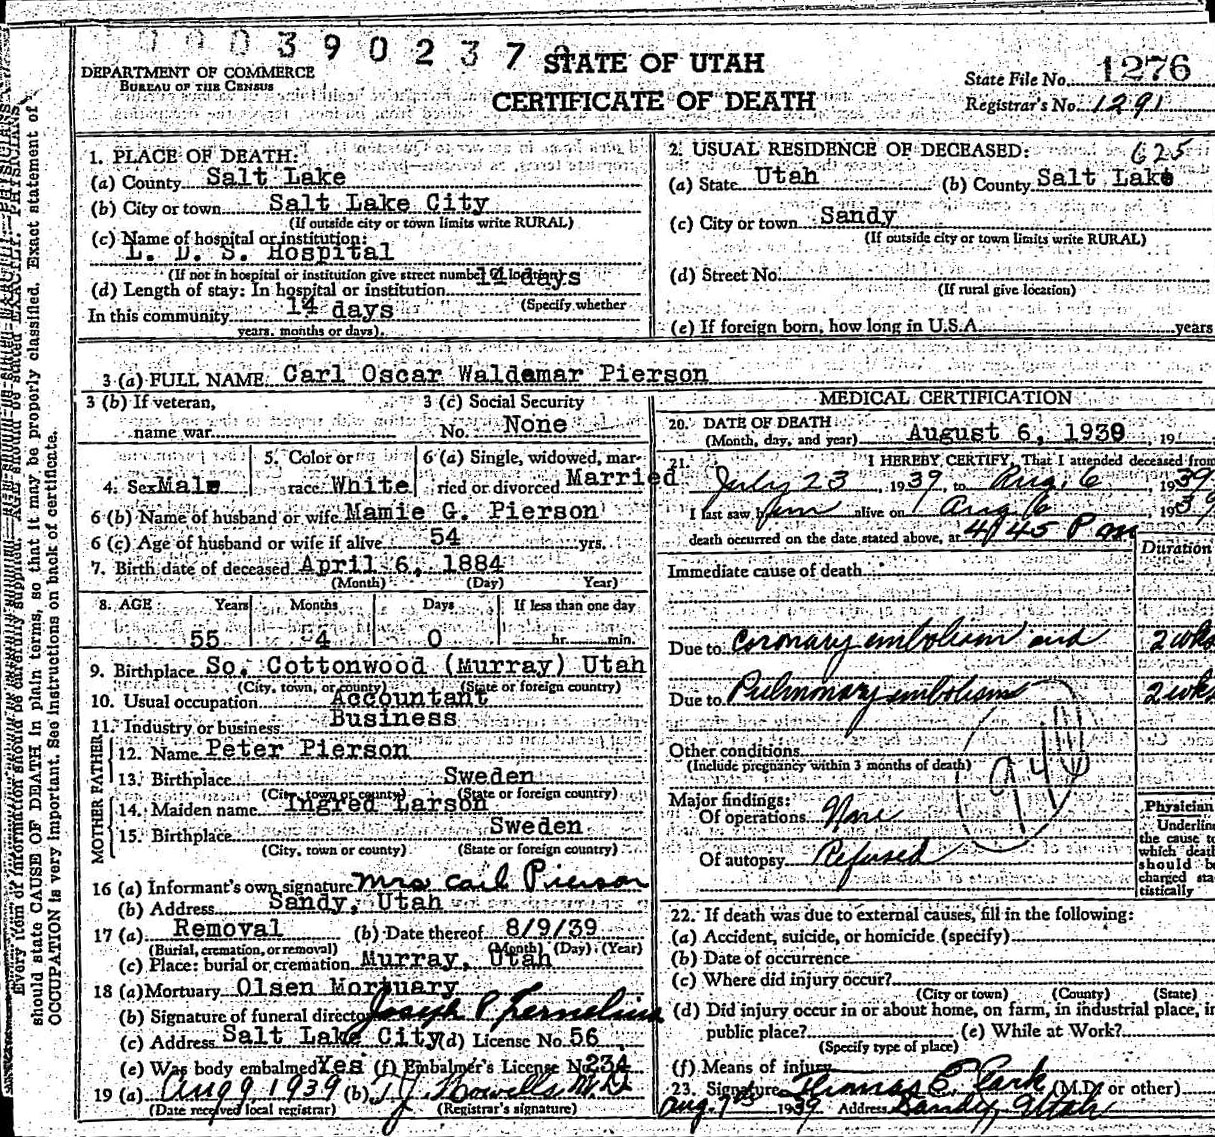 0003902379
STATE OF UTAH
CERTIFICATE OF DEATH
DEPARTMENT OF COMMERCE
BUREAU OF THE CENSUS
State File No. 1276
Registrar's No. 1291
1. PLACE OF DEATH:
(a) County Salt Lake
(b) City or town Salt Lake City
(If outside city or town limits write RURAL)
(c) Name of hospital or institution:
L. D. S. Hospital
(If not in hospital or institution give street number or location)
(d) Length of stay: In hospital or institution 14 days
(Specify whether
In this community 14 days
years, months or days).
2. USUAL RESIDENCE OF DECEASED: 625
(a) State Utah (b) County Salt Lake
(c) City or town Sandy
(If outside city or town limits write RURAL)
(d) Street No.
(If rural give location)
(e) If foreign born, how long in U.S.A. years
3 (a) FULL NAME Carl Oscar Waldemar Pierson
3 (b) If veteran,
name war
3 (c) Social Security
No. None
4. Sex Male
5. Color or
race White
6 (a) Single, widowed, mar-
ried or divorced Married
6 (b) Name of husband or wife Mamie G. Pierson
6 (c) Age of husband or wife if alive 54 yrs.
7. Birth date of deceased April 6, 1884
(Month) (Day) Year)
8. AGE Years Months Days If less than one day
55 4 0 hr. min.
9. Birthplace So. Cottonwood (Murray) Utah
(City, town, or county) (State or foreign country)
10. Usual occupation Accountant
11. Industry or business Business
FATHER
12. Name Peter Pierson
13. Birthplace Sweden
(City, town or county) (State or foreign country)
MOTHER
14. Maiden name Ingred Larson
15. Birthplace Sweden
(City, town or county) (State or foreign country)
16 (a) Informant's own signature Mrs Carl Pierson
(b) Address Sandy, Utah
17 (a) Removal (b) Date thereof 8/9/39
(Burial, cremation, or removal) (Month) (Day) (Year)
(c) Place: burial or cremation Murray, Utah
18 (a) Mortuary Olsen Mortuary
(b) Signature of funeral director Joseph P. Fernelius
(c) Address Salt Lake City (d) License No. 56
(e) Was body embalmed Yes (f) Embalmer's License No. 234
19 (a) Aug 9, 1939 (b) T. J. Howells M.D.
(Date received local registrar) (Registrar's signature)
MEDICAL CERTIFICATION
20. DATE OF DEATH
(Month, day, and year) August 6, 1939, 19
21. I HEREBY CERTIFY, That I attended deceased from
July 23, 1939, to Aug. 6, 1939
I last saw him alive on Aug 6 1939
death occurred on the date stated above, at 4/45 P m
Duration
Immediate cause of death
Due to coronary embolism and 2 wks
Due to Pulmonary embolism 2 wks
Other conditions
(Include pregnancy within 3 months of death)
Major findings:
Of operations None
Of autopsy Refused
Physician
Underline
the cause to
which death
should be
charged sta-
tistically
22. If death was due to external causes, fill in the following:
(a) Accident, suicide, or homicide (specify)
(b) Date of occurrence
(c) Where did injury occur?
(City or town) (County) (State)
(d) Did injury occur in or about home, on farm, in industrial place, in
public place? (e) While at Work?
(Specify type of place)
(f) Means of injury
23. Signature Thomas C. Clark (M.D. or other)
Aug. 7th 1939 Address Sandy, Utah
should state CAUSE OF DEATH in plain terms, so that it may be properly classified. Exact statement of
OCCUPATION is very important. See instructions on back of certificate.